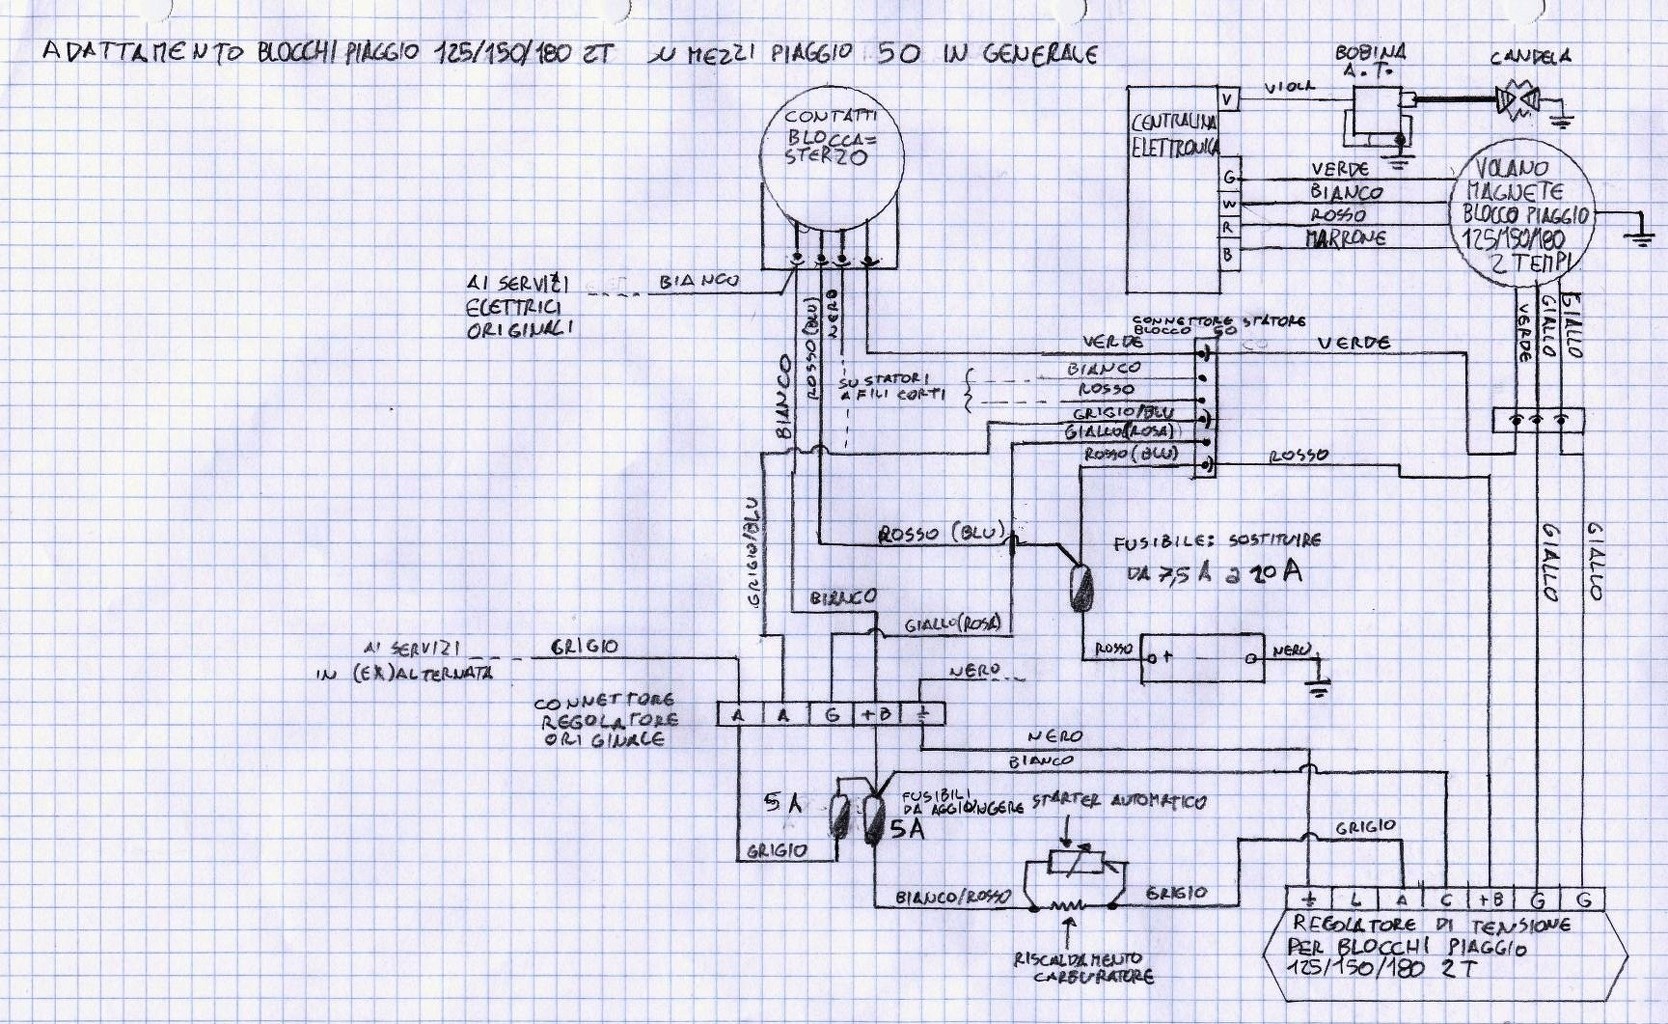 ADATTAMENTO BLOCCHI PIAGGIO 125/150/180 2T SU MEZZI PIAGGIO 50 IN GENERALE
BOBINA
A.T.
CANDELA
CONTATTI
BLOCCA=
STERZO
CENTRALINA
ELETTRONICA
V
G
W
R
B
VIOLA
VERDE
BIANCO
ROSSO
MARRONE
VOLANO
MAGNETE
BLOCCO PIAGGIO
125/150/180
2 TEMPI
AI SERVIZI
ELETTRICI
ORIGINALI
BIANCO
BIANCO
ROSSO (BLU)
NERO
CONNETTORE STATORE
BLOCCO 50
VERDE
BIANCO
ROSSO
GRIGIO/BLU
GIALLO(ROSA)
ROSSO(BLU)
SU STATORI
A FILI CORTI
VERDE
ROSSO
VERDE
GIALLO
GIALLO
GRIGIO/BLU
ROSSO (BLU)
FUSIBILE: SOSTITUIRE
DA 7,5 A a 20 A
GIALLO
GIALLO
BIANCO
GIALLO(ROSA)
AI SERVIZI
IN (EX)ALTERNATA
GRIGIO
ROSSO
+
NERO
NERO
CONNETTORE
REGOLATORE
ORIGINALE
A A G +B
NERO
BIANCO
5 A
FUSIBILI
DA AGGIUNGERE
5A
STARTER AUTOMATICO
GRIGIO
GRIGIO
BIANCO/ROSSO
GRIGIO
RISCALDAMENTO
CARBURATORE
L A C +B G G
REGOLATORE DI TENSIONE
PER BLOCCHI PIAGGIO
125/150/180 2T